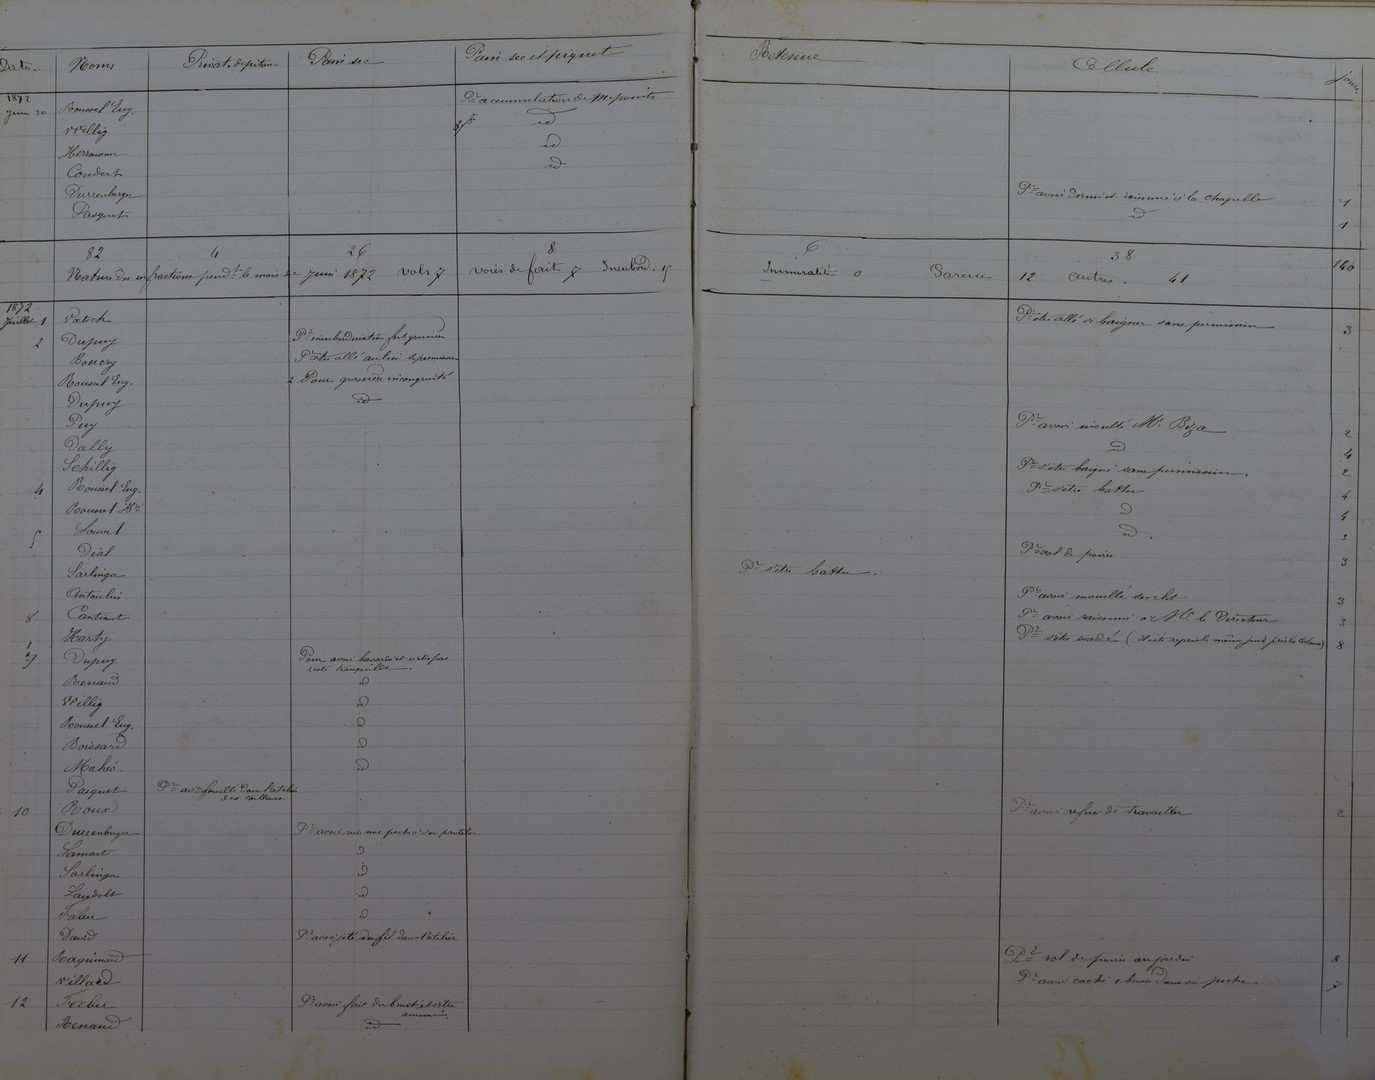 Date Noms Privat. de pitance Pain sec Pain sec et piquet Retenue Cellule jours
1872
Juin 30 Roussel Eug. Pr accumulation de M. points
Willig id
Herrmann id
Condert id
Durrenberger Pr avoir dormi et à la chapelle 1
Pasquet id 1
82 4 26 8 6 38 120
Nature des infractions pendt le mois de Juin 1872 vols 7 voies de fait 7 Insubord. 15 Immoralité 0 Paresse 12 autres. 41
1872
Juillet 1 Pr être allé se baigner sans permission 3
2 Dupuy Pr insubordination
Roncy Pr être allé
Roussel Eug. 2 Pour grossière incongruité
Dupuy id
Puy Pr avoir insulté Mr. 2
Dally id 4
Schillig Pr s'être baigné sans permission. 2
4 Roussel Eug. Pr s'être battu 4
Roussel Hri id 4
id. 3
5 Dial Pr vol de poires 3
Sarlinga Pr s'être battu.
Antonlini Pr avoir mouillé son lit 3
8 Pr avoir raisonné Mr le Directeur 3
Harty Pr s'être évadé ( repris le même jour 8
9 Dupuy Pour avoir bavardé et
resté tranquille.
Renaud id
Willig id
Roussel Eug. id
Boissard id
Mahéo id
Pasquet Pr avr fouillé dans l'atelier
des tailleurs
10 Roux Pr avoir refusé de travailler 2
Durrenberger Pr avoir mis une poche à son pantalon
id
Sarlinga id
Landolt id
Faber id
David Pr avoir jeté du fil dans l'atelier
11 Pr vol de poires au jardin 8
Villard Pr avoir caché dans sa poche
12 Faber Pr avoir fait du bruit et s'être
Renaud id